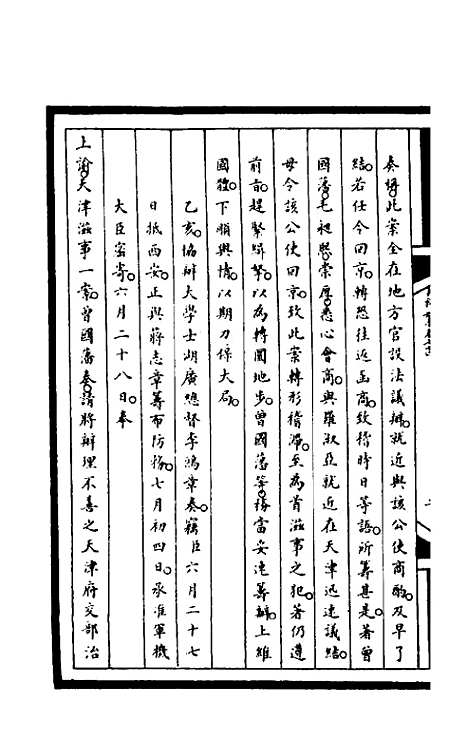 奏稱。此案全在地方官設法議辦。就近與該公使商酌。及早了
結。若任令回京。轉恐往返函商。致稽時日等語。所籌甚是。著曾
國藩。毛昶熙。崇厚。悉心會商。與羅淑亞就近在天津迅速議結。
毋令該公使回京。致此案轉形稽滯。至為首滋事之犯。著仍遵
前旨。趕緊緝拏。以為轉圜地步。曾國藩等。務當妥速籌辦。上維
國體。下順輿情。以期力保大局。
乙亥。協辦大學士湖廣總督李鴻章奏。竊臣六月二十七
日抵西安。正與蔣志章籌布防務。七月初四日。承准軍機
大臣密寄。六月二十八日。奉
上諭。天津滋事一案。曾國藩奏。請將辦理不善之天津府交部治